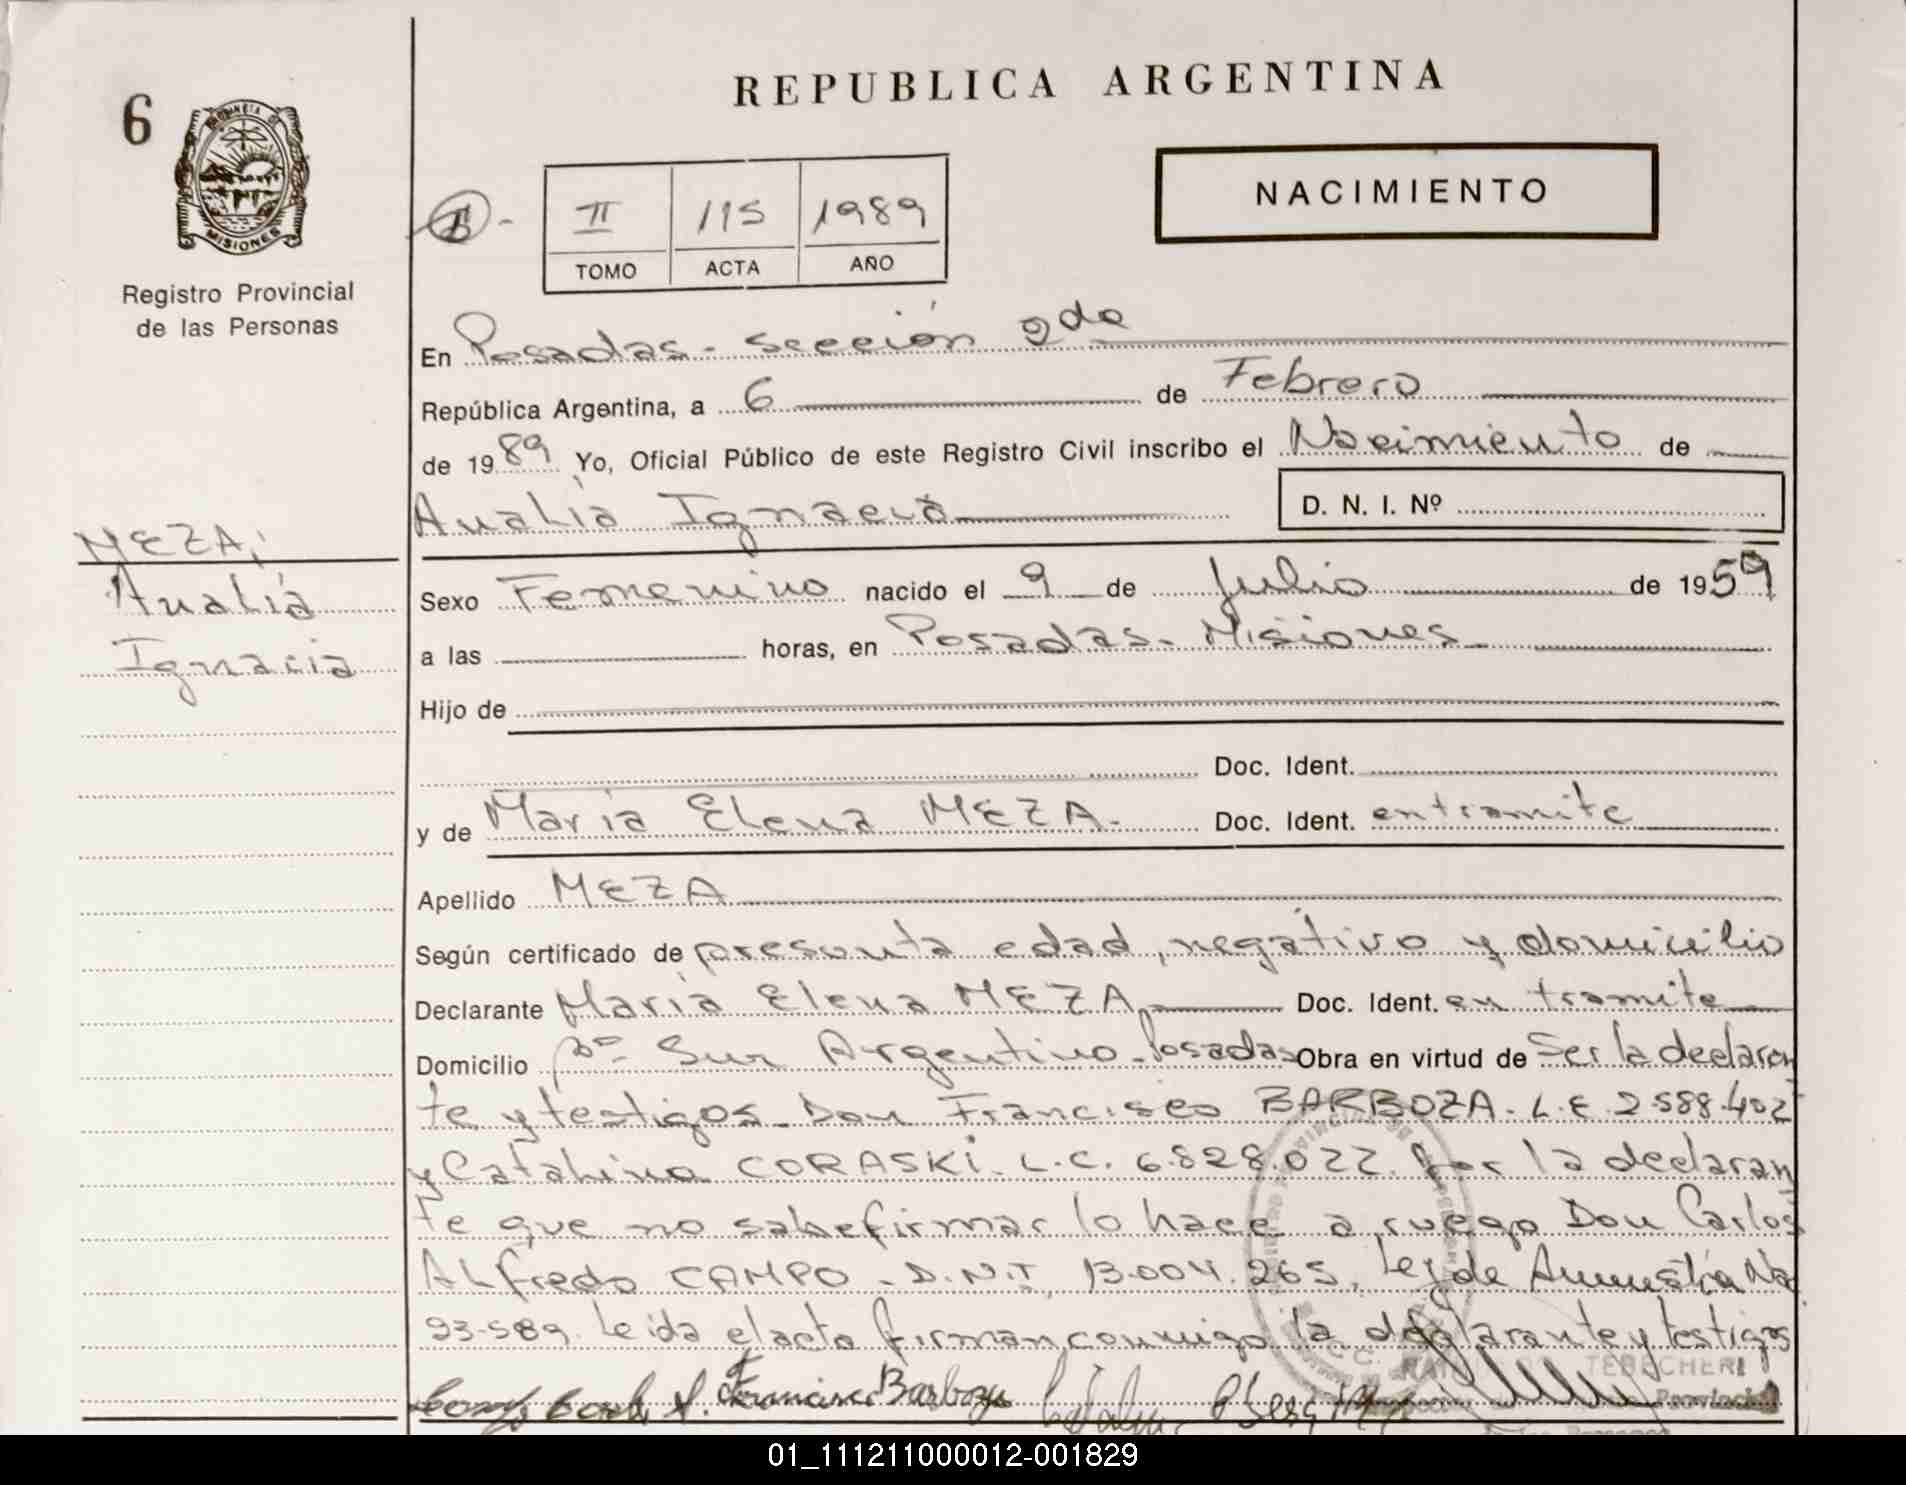 REPUBLICA ARGENTINA
6
PROVINCIA DE
MISIONES
Registro Provincial
de las Personas
NACIMIENTO
II 115 1989
TOMO ACTA AÑO
En Posadas - sección 2da
República Argentina, a 6 de Febrero
de 1989 Yo, Oficial Público de este Registro Civil inscribo el Nacimiento de
Analía Ignacia
D. N. I. Nº
MEZA,
Analía
Ignacia
Sexo Femenino nacido el 9 de Julio de 1959
a las horas, en Posadas - Misiones
Hijo de
Doc. Ident.
y de María Elena MEZA. Doc. Ident. entramite
Apellido MEZA
Según certificado de presunta edad, negativo y domicilio
Declarante María Elena MEZA Doc. Ident. en tramite
Domicilio Bº Sur Argentino - Posadas Obra en virtud de Ser la declaran
te y testigos - Don Francisco BARBOZA - L.E. 2588.402
y Catalina CORASKI - L.C. 6.828.022. Por la declaran
te que no sabe firmar lo hace a ruego Don Carlos
Alfredo CAMPO - D.N.I. 13.004.265, Ley de Amnistía Nac
23.589. Leida el acta firman conmigo la declarante y testigos
Francisco Barboza
TEBECHERI
Provincial
01_111211000012-001829